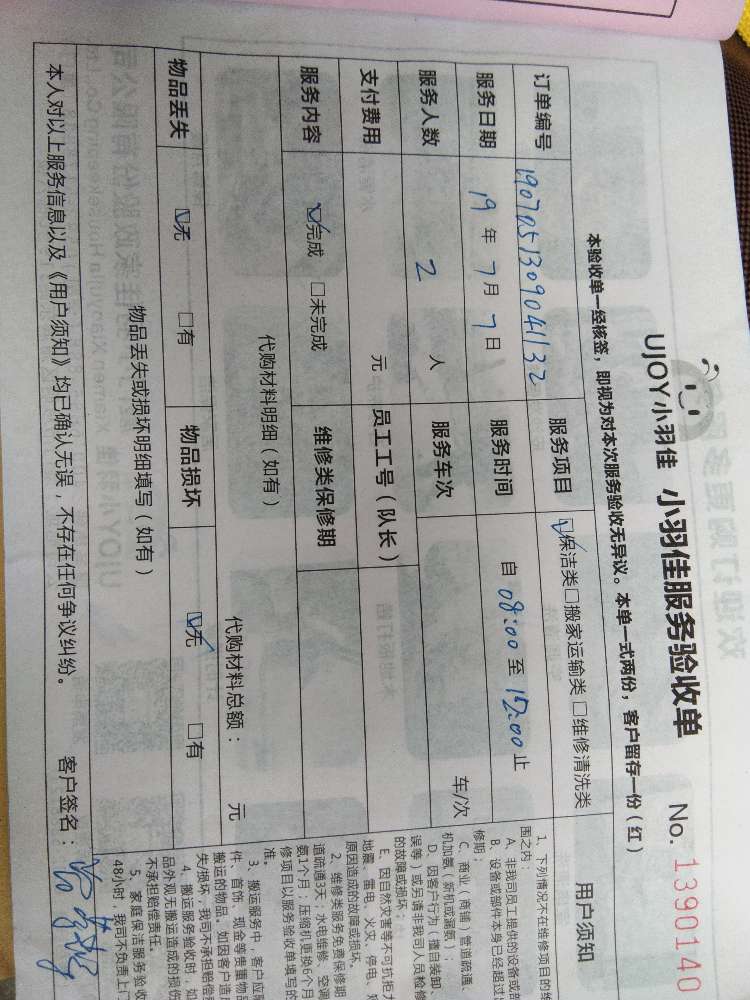 UJOY小羽佳 小羽佳服务验收单 No. 1390140
本验收单一经核签，即视为对本次服务验收无异议。本单一式两份，客户留存一份（红）
订单编号 1907051309041132 服务项目 ☑保洁类□搬家运输类 □维修清洗类
服务日期 19 年 7 月 7 日 服务时间 自 08:00 至 12:00 止
服务人数 2 人 服务车次 车/次
支付费用 元 员工工号（队长）
服务内容 ☑完成 □未完成 维修类保修期
代购材料明细（如有） 代购材料总额： 元
物品丢失 ☑无 □有 物品损坏 ☑无 □有
物品丢失或损坏明细填写（如有）
本人对以上服务信息以及《用户须知》均已确认无误，不存在任何争议纠纷。 客户签名：
用户须知
1、下列情况不在维修项目的维
围之内：
A、非我司员工提供的设备或部
B、设备或部件本身已经超过
修期；
C、商业（商铺）管道疏通、
机加氨（新机或漏氨）；
D、因客户行为（擅自装卸、
误等）或另请非我司人员检修
的故障或损坏；
E、因自然灾害等不可抗拒力
地震、雷电、火灾、停电、
原因造成的故障或损坏。
2、维修类服务免费保修期
道疏通3天；水电维修、空调
氨1个月；压缩机更换6个月
修项目以服务验收单填写的
准。
3、搬运服务中，客户应
件、首饰、现金等贵重物品
搬运的物品。如因客户造成
失/损坏，我司不承担赔偿
4、搬运服务验收时，如
品外观无搬运造成的损伤
不承担赔偿责任。
5、家庭保洁服务验收
48小时，我司不负责上门